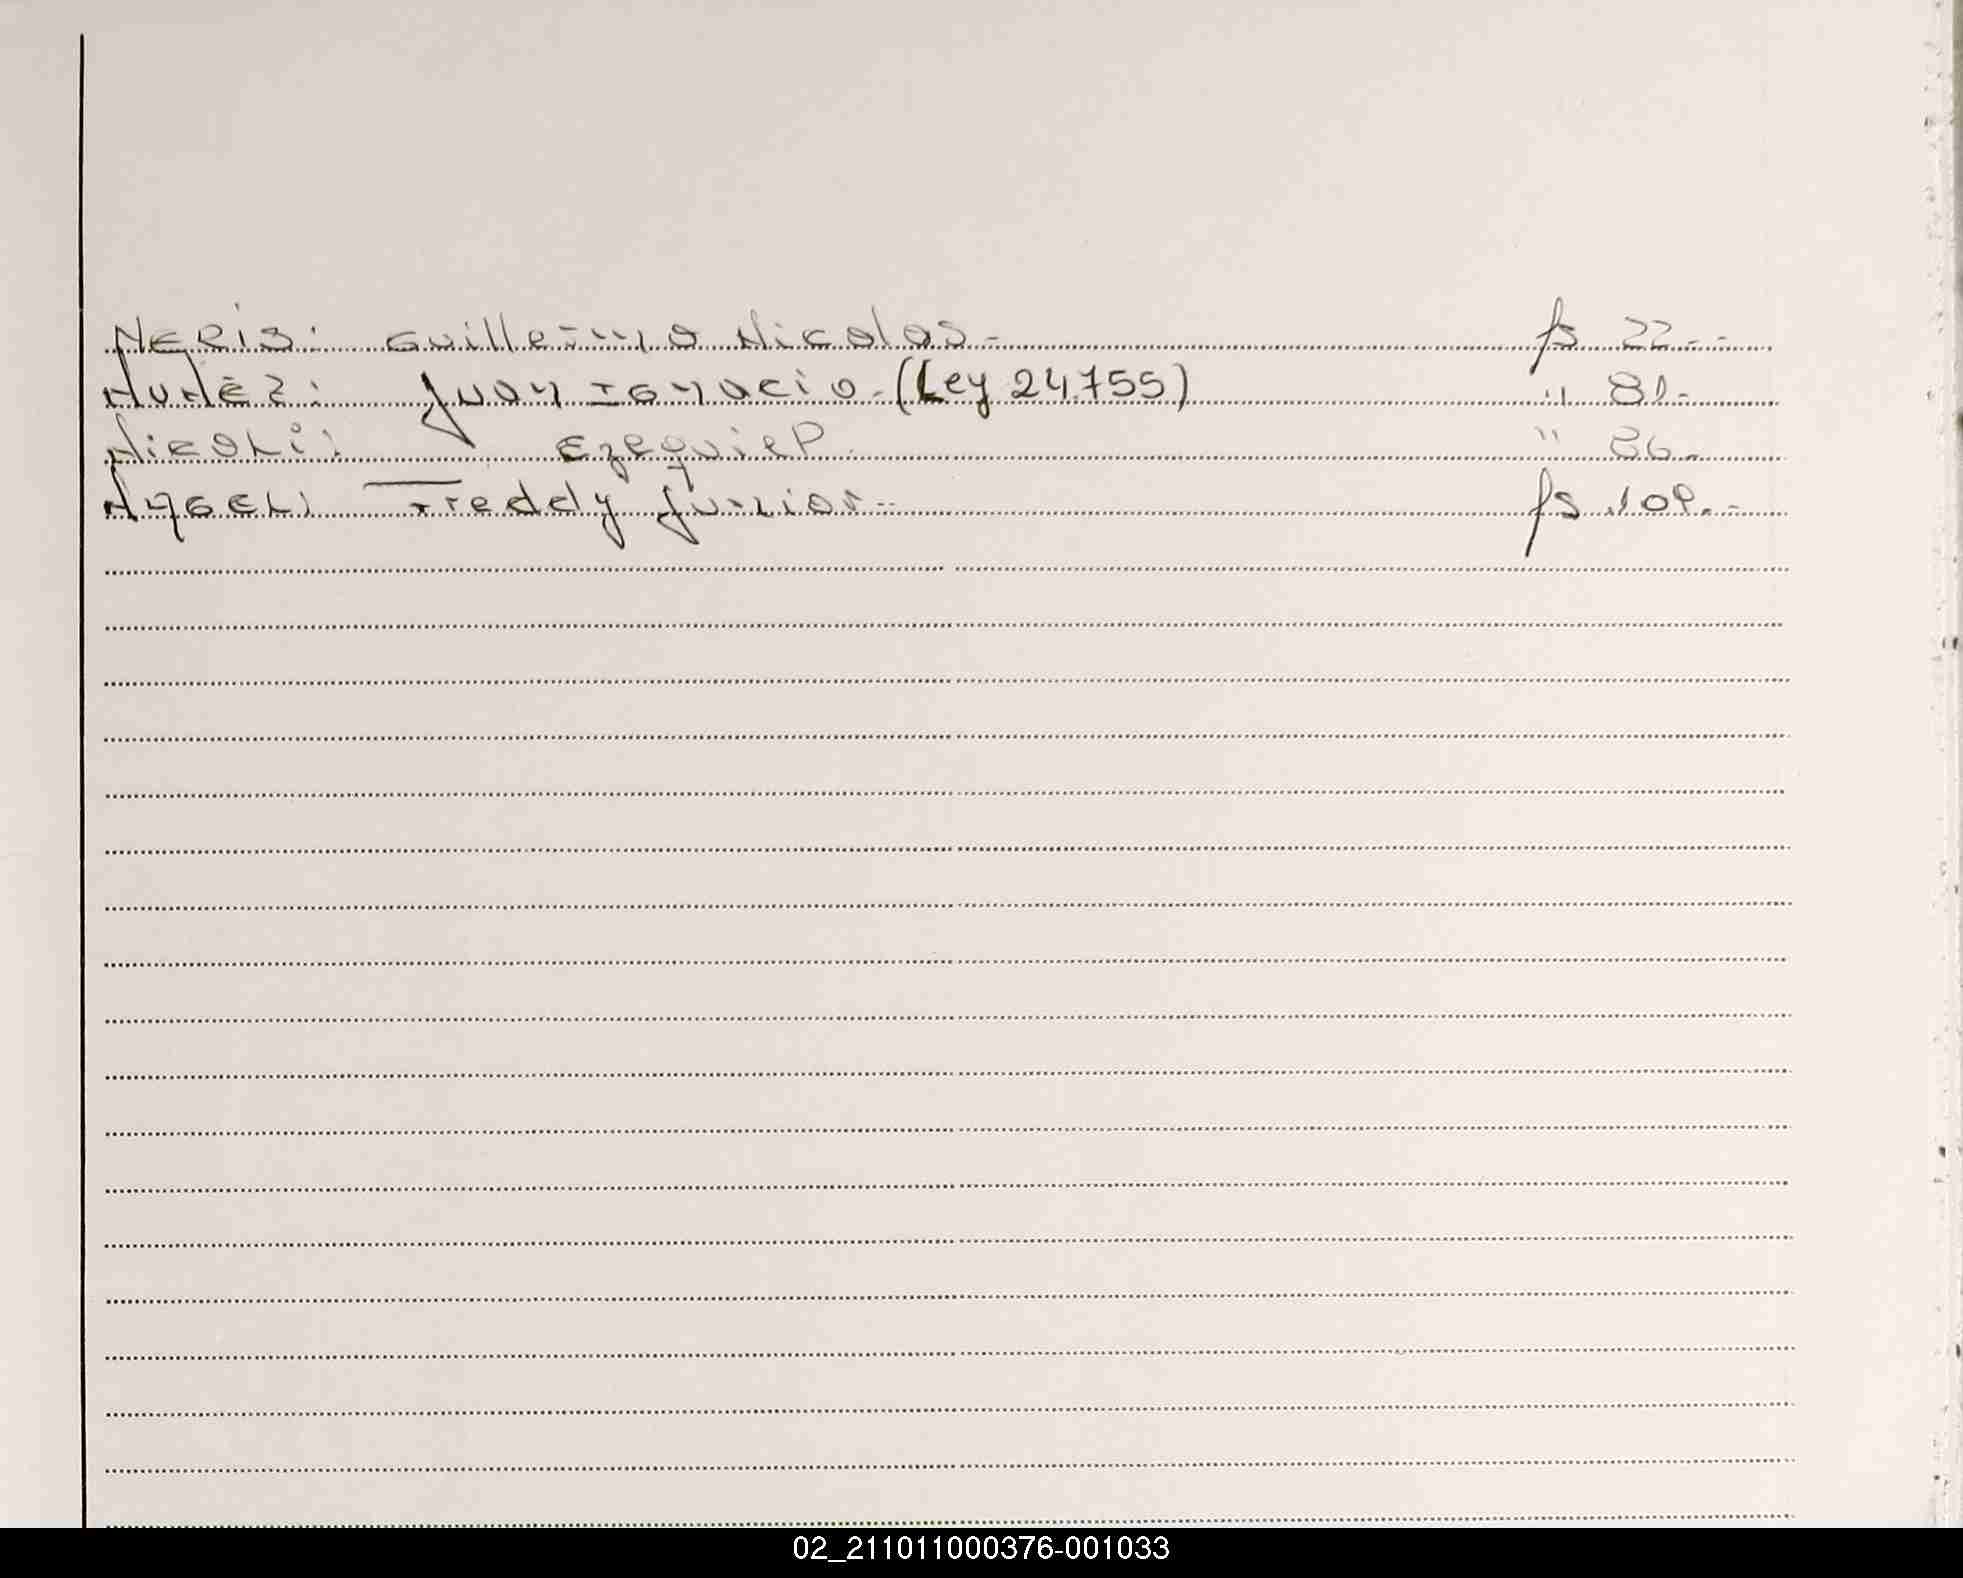 NERIS: Guillermo Nicolas.- fs 22.--
NUÑEZ: Juan Ignacio.(Ley 24.755) " 81.-
NICOLI: Ezequiel. " 86.-
Freddy Junior.-- fs 109.--
02_211011000376-001033